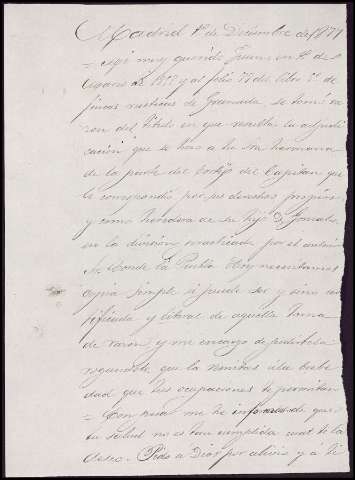 Madrid 1º de Diciembre de 1871
= Mi muy querido Juan: en 1º de
de 18 y al folio 77 del libro 1º de
fincas rusticas de Granada se tomó ra
zon del titulo en que resulta la adjudi
cacion que se hizo a la Sra hermana
de la parte del Cortijo del Capitan que
le correspondió por sus derechos propios
y como heredera de su hijo Dn Gonzalo
en la division practicada por el
de la Puebla. Hoy necesitamos
copia simple si puede ser y sino cer
tificada y literal de aquella toma
de razon, y me encargo de pedirtela
rogandote que la remitas a la breve
dad que tus ocupaciones te permitan
= Con pena me he informado de que
tu salud no es tan cumplida cual te la
deseo. Pido a Dios por tu alivio y a ti